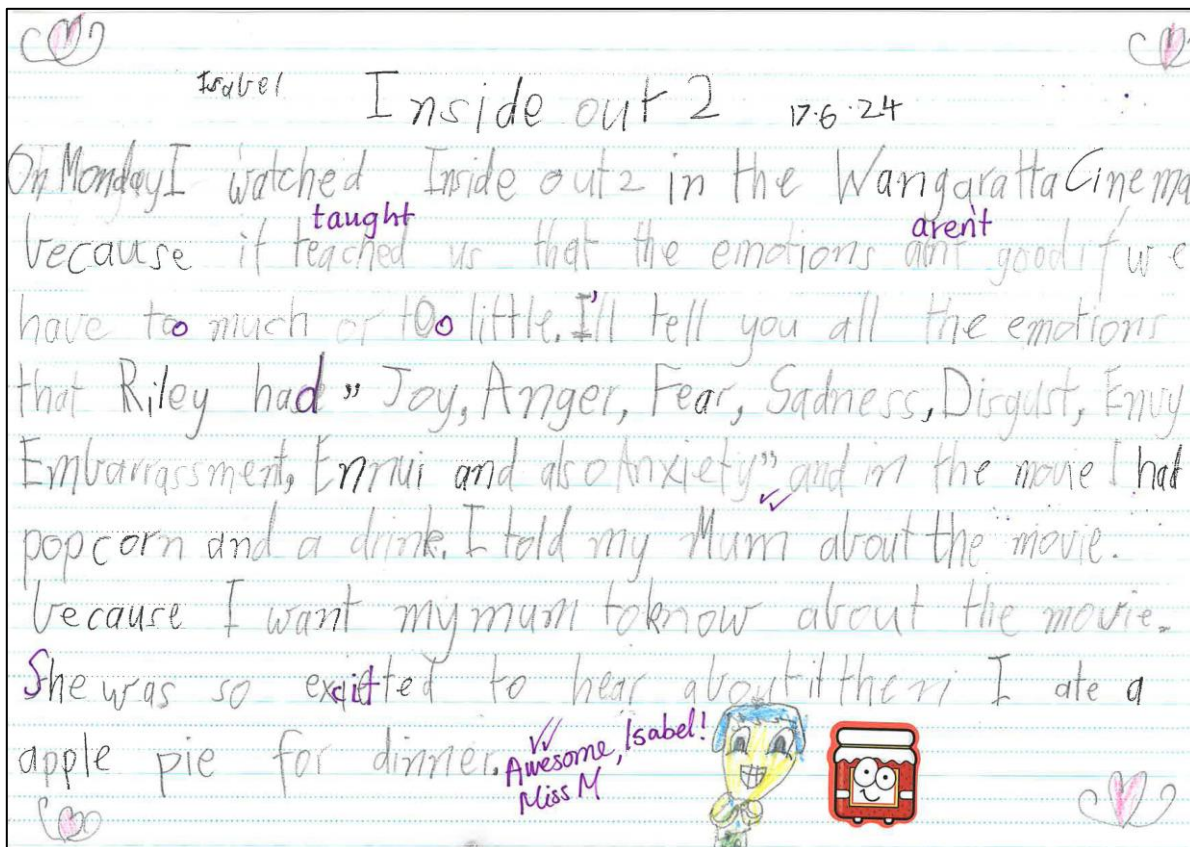 Isabel Inside out 2 17.6.24
On Monday I watched Inside out 2 in the Wangaratta Cinema
taught aren't
because it teached us that the emotions aint good if we
have too much or too little. I'll tell you all the emotions
that Riley had " Joy, Anger, Fear, Sadness, Disgust, Envy
Embarrassment, Ennui and also Anxiety" and in the movie I had
popcorn and a drink. I told my Mum about the movie.
because I want my mum to know about the movie.
She was so excitted to hear about it then I ate a
apple pie for dinner. Awesome, Isabel!
Miss M